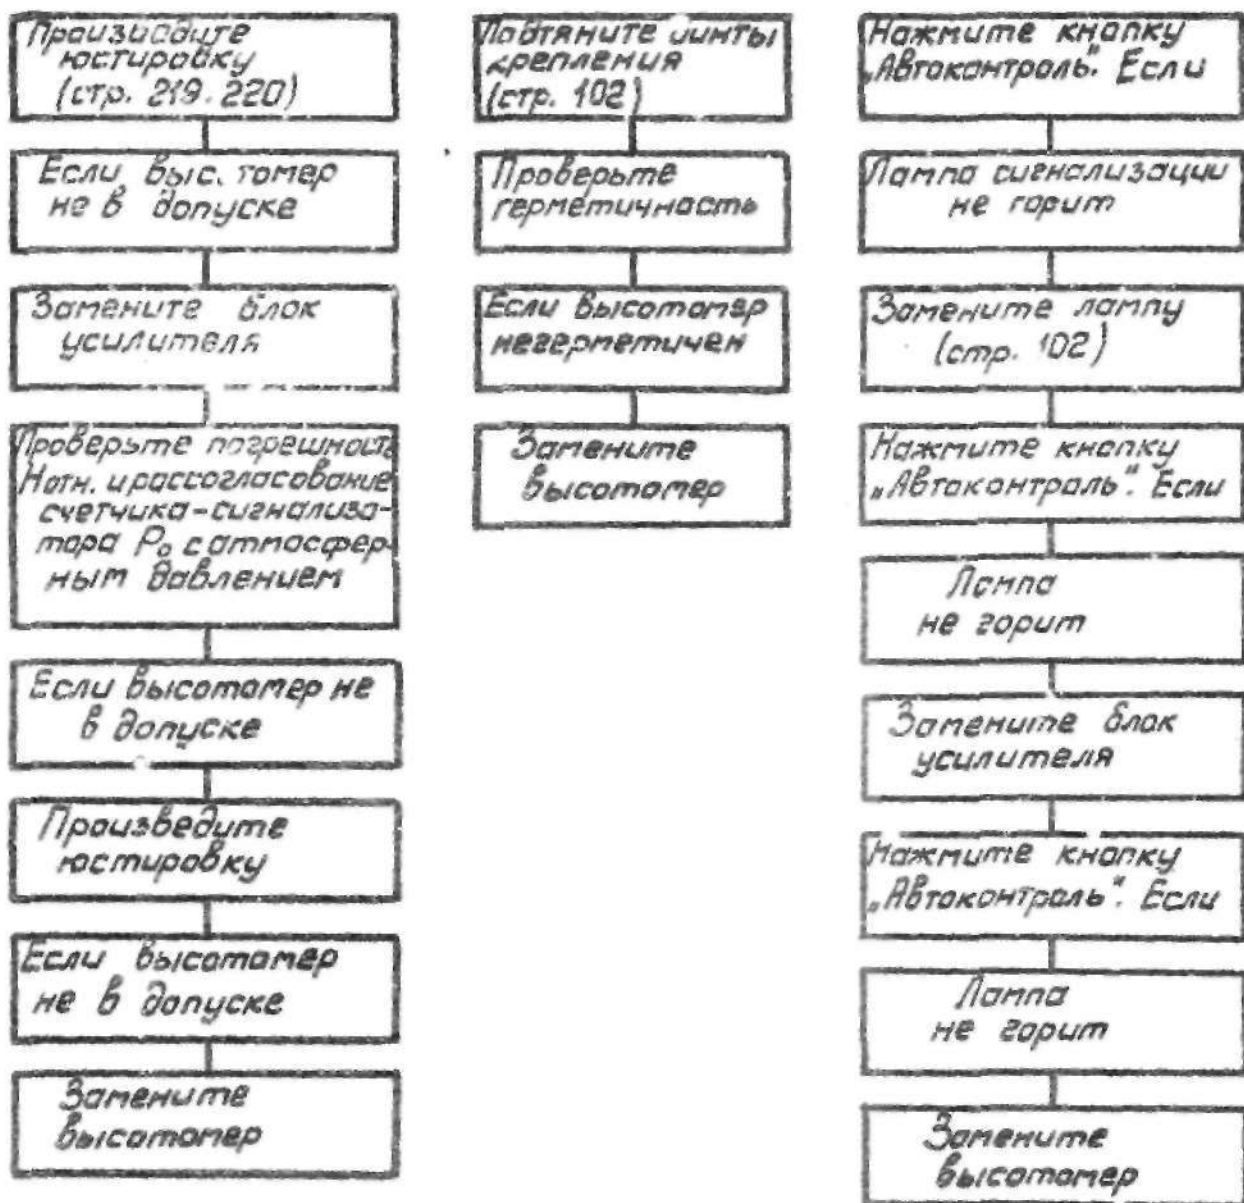 Произведите
юстировку
(стр. 219, 220)
Если высотомер
не в допуске
Замените блок
усилителя
Проверьте погрешность
Нотн. и рассогласование
счетчика-сигнализа-
тора Р₀ с атмосфер-
ным давлением
Если высотомер не
в допуске
Произведите
юстировку
Если высотомер
не в допуске
Замените
высотомер
Подтяните винты
крепления
(стр. 102)
Проверьте
герметичность
Если высотомер
негерметичен
Замените
высотомер
Нажмите кнопку
„Автоконтроль". Если
Лампа сигнализации
не горит
Замените лампу
(стр. 102)
Нажмите кнопку
„Автоконтроль". Если
Лампа
не горит
Замените блок
усилителя
Нажмите кнопку
„Автоконтроль". Если
Лампа
не горит
Замените
высотомер